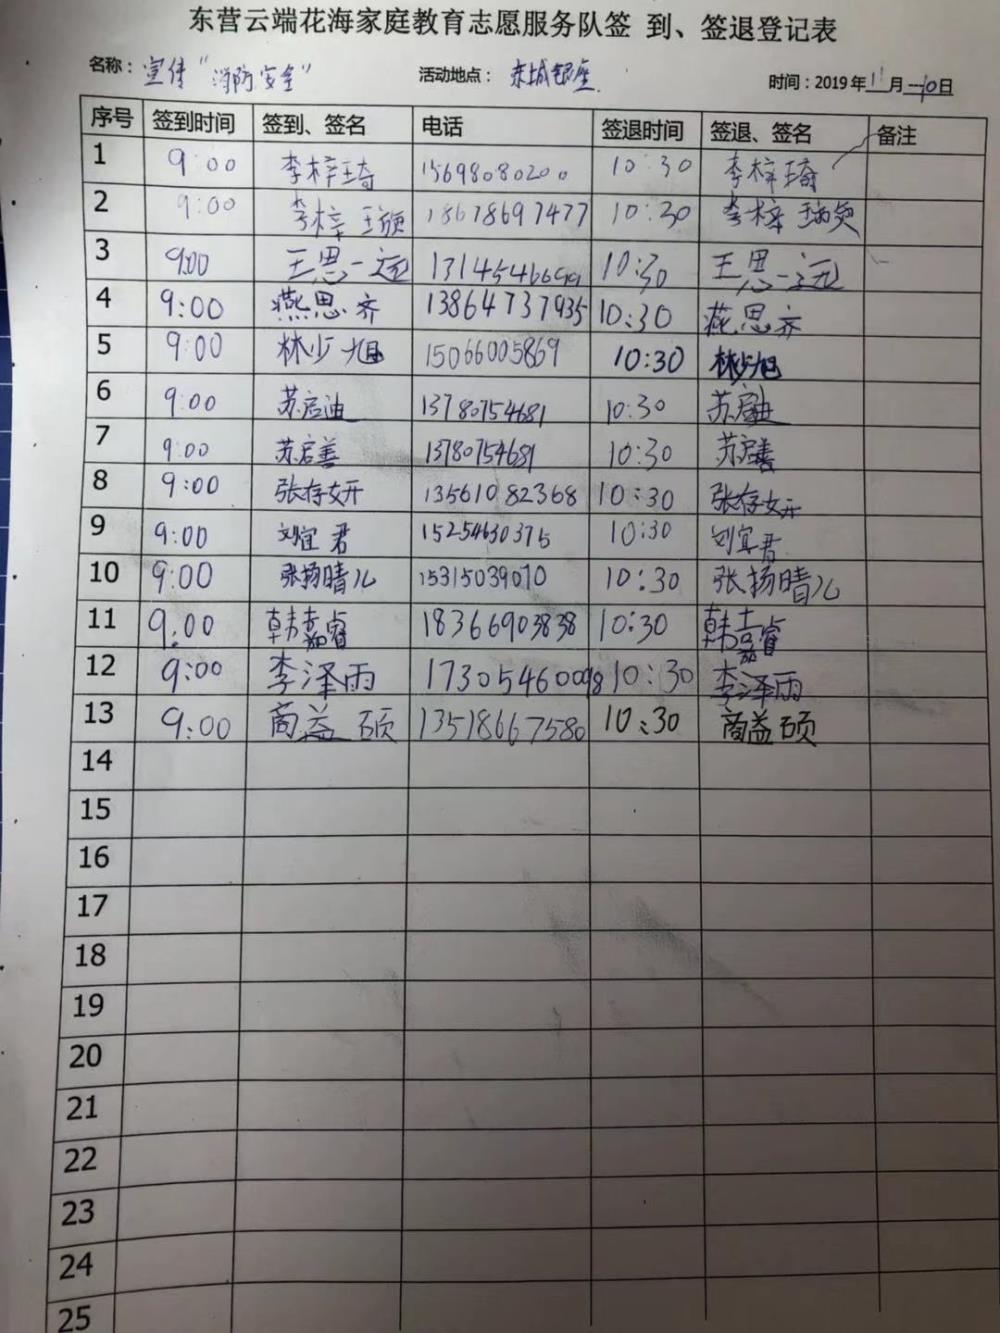 东营云端花海家庭教育志愿服务队签 到、签退登记表
名称： 宣传“消防安全” 活动地点： 东城银座 时间：2019年11月10日
序号 签到时间 签到、签名 电话 签退时间 签退、签名 备注
1 9:00 李梓琦 15698080200 10:30 李梓琦
2 9:00 李梓 18678697477 10:30 李梓
3 9:00 王思远 10:30 王思远
4 9:00 燕思齐 13864737935 10:30 燕思齐
5 9:00 林少旭 15066005869 10:30 林少旭
6 9:00 苏启迪 13780754681 10:30 苏启迪
7 9:00 苏启善 13780754681 10:30 苏启善
8 9:00 张存妍 13561082368 10:30 张存妍
9 9:00 刘宜君 15254630375 10:30 刘宜君
10 9:00 张扬晴儿 15315039070 10:30 张扬晴儿
11 9:00 韩嘉睿 18366903838 10:30 韩嘉睿
12 9:00 李泽雨 17305460098 10:30 李泽雨
13 9:00 商益硕 13518667580 10:30 商益硕
14
15
16
17
18
19
20
21
22
23
24
25